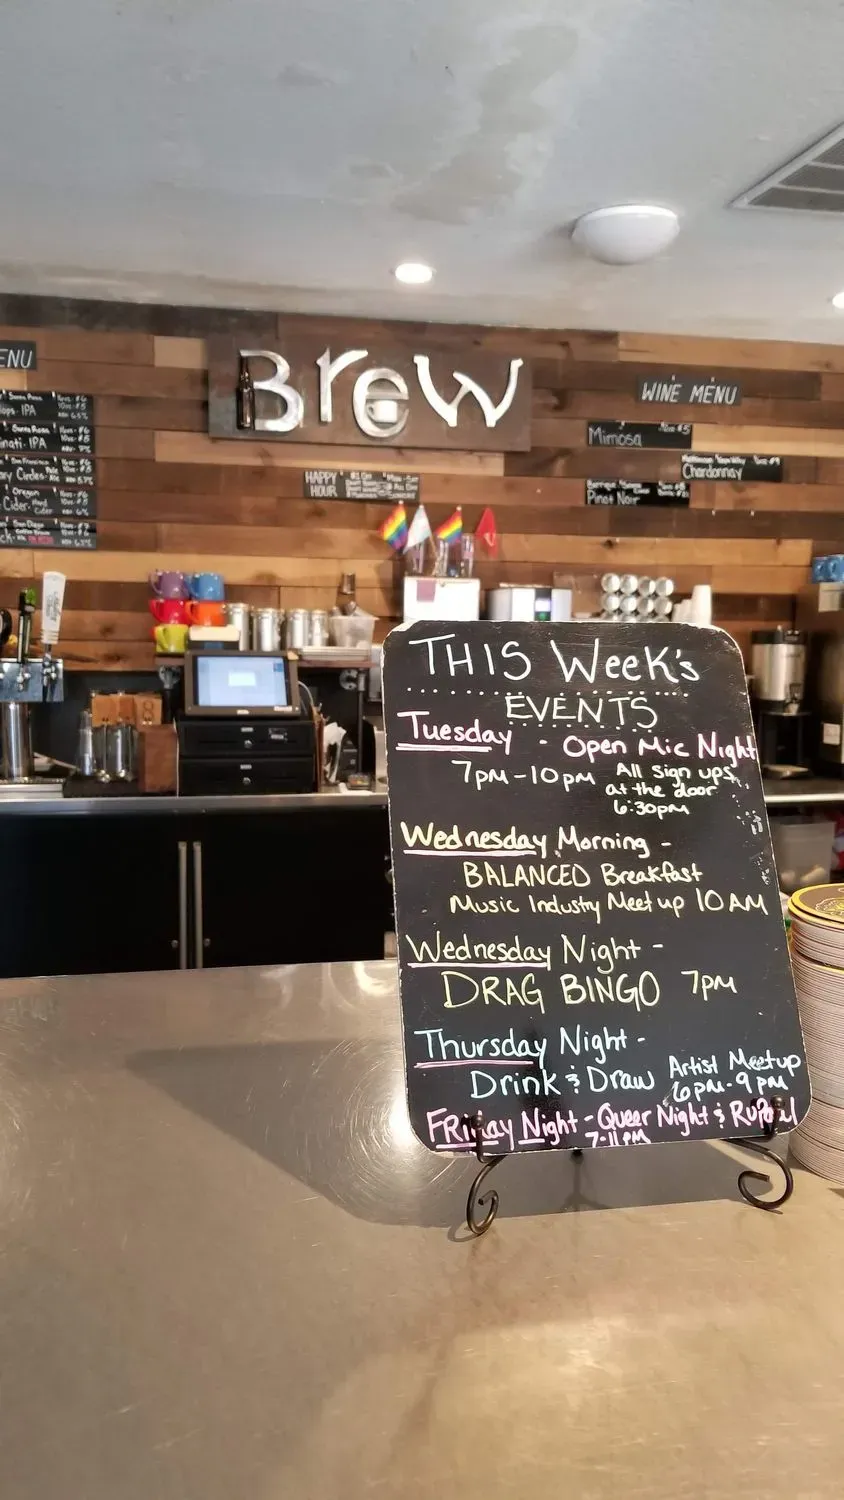 Brew
WINE MENU
Mimosa
Chardonnay
Pinot Noir
HAPPY
HOUR
ENU
IPA
IPA
Circles
Oregon
Cider
San Diego
THIS Week's
EVENTS
Tuesday - Open Mic Night
7pm-10pm All sign ups
at the door
6:30pm
Wednesday Morning -
BALANCED Breakfast
Music Industry Meet up 10 AM
Wednesday Night -
DRAG BINGO 7pm
Thursday Night -
Drink & Draw Artist Meetup
6pm-9pm
FRiday Night - Queer Night & RuPaul
7-11pm